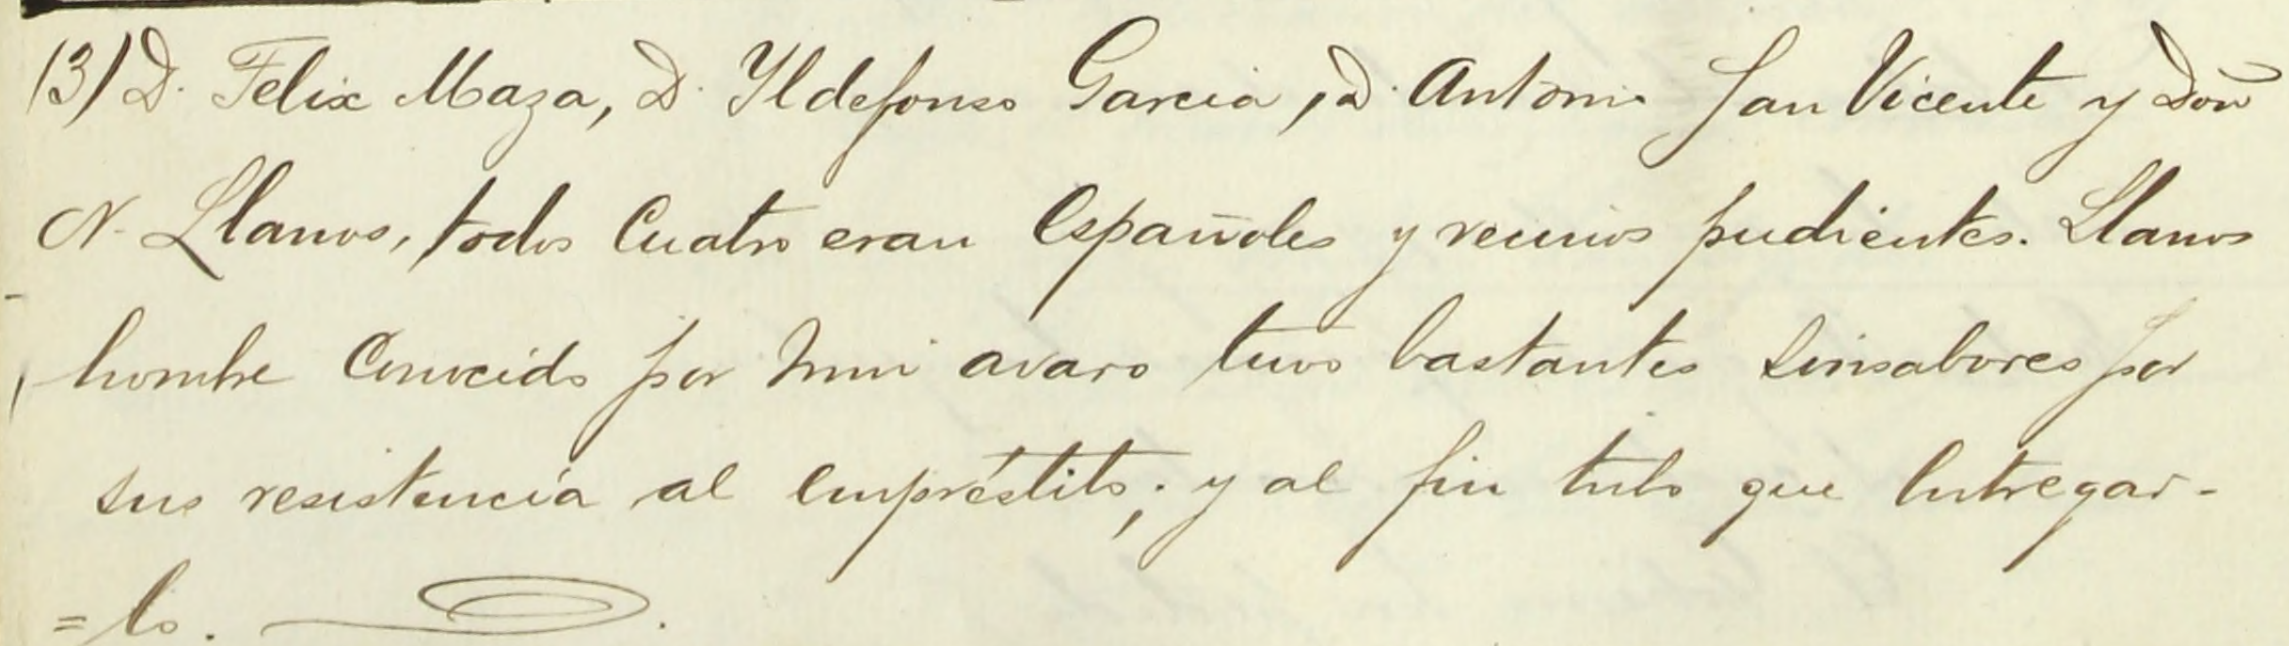 (3) D. Felix Maza, D. Yldefonso Garcia, D. Antonio San Vicente y Don
N. Llanos, todos cuatro eran españoles y vecinos pudientes. Llanos
hombre conocido por mui avaro tuvo bastantes sinsabores por
sus resistencia al empréstito; y al fin tubo que entregar-
=lo.